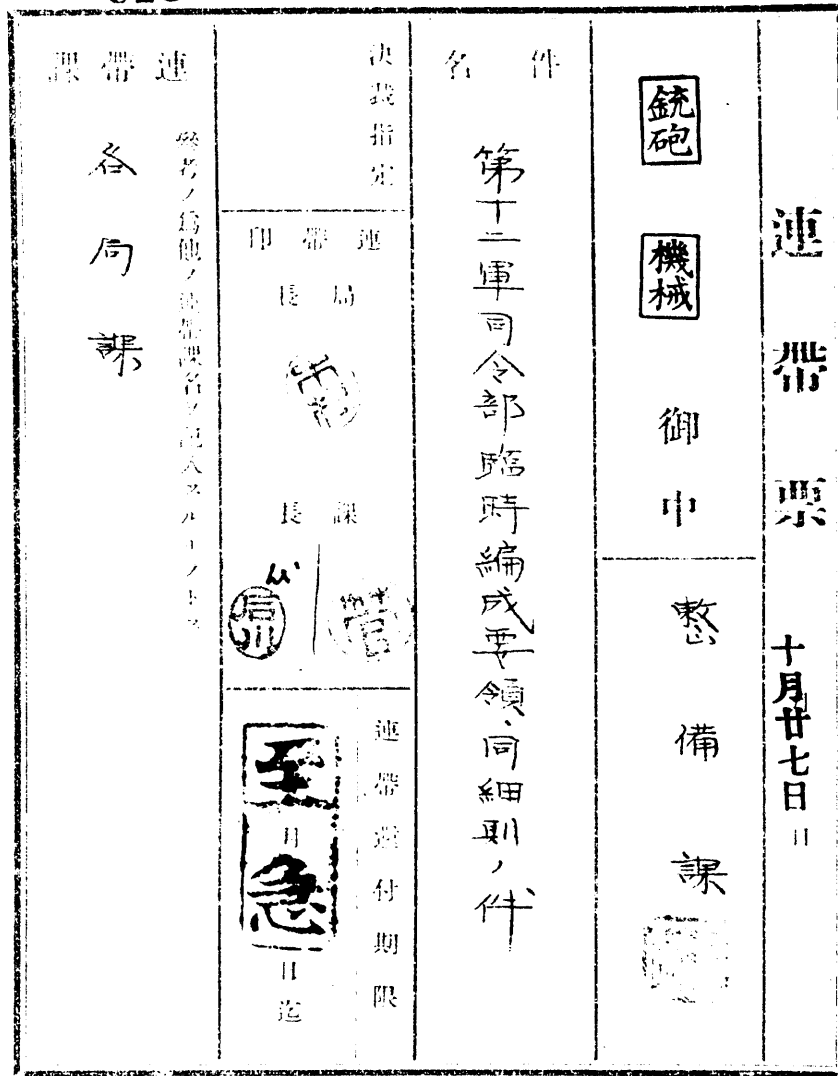 連帶票
十月廿七日
日
銃砲
機械
御中
整備課
件名
第十二軍司令部臨時編成要領、同細則ノ件
決裁指定
連帶印
局長
課長
連帶還付期限
至急
月
日迄
連帶課
參考ノ爲他ノ連帶課名ヲ記入スルモノトス
各局課